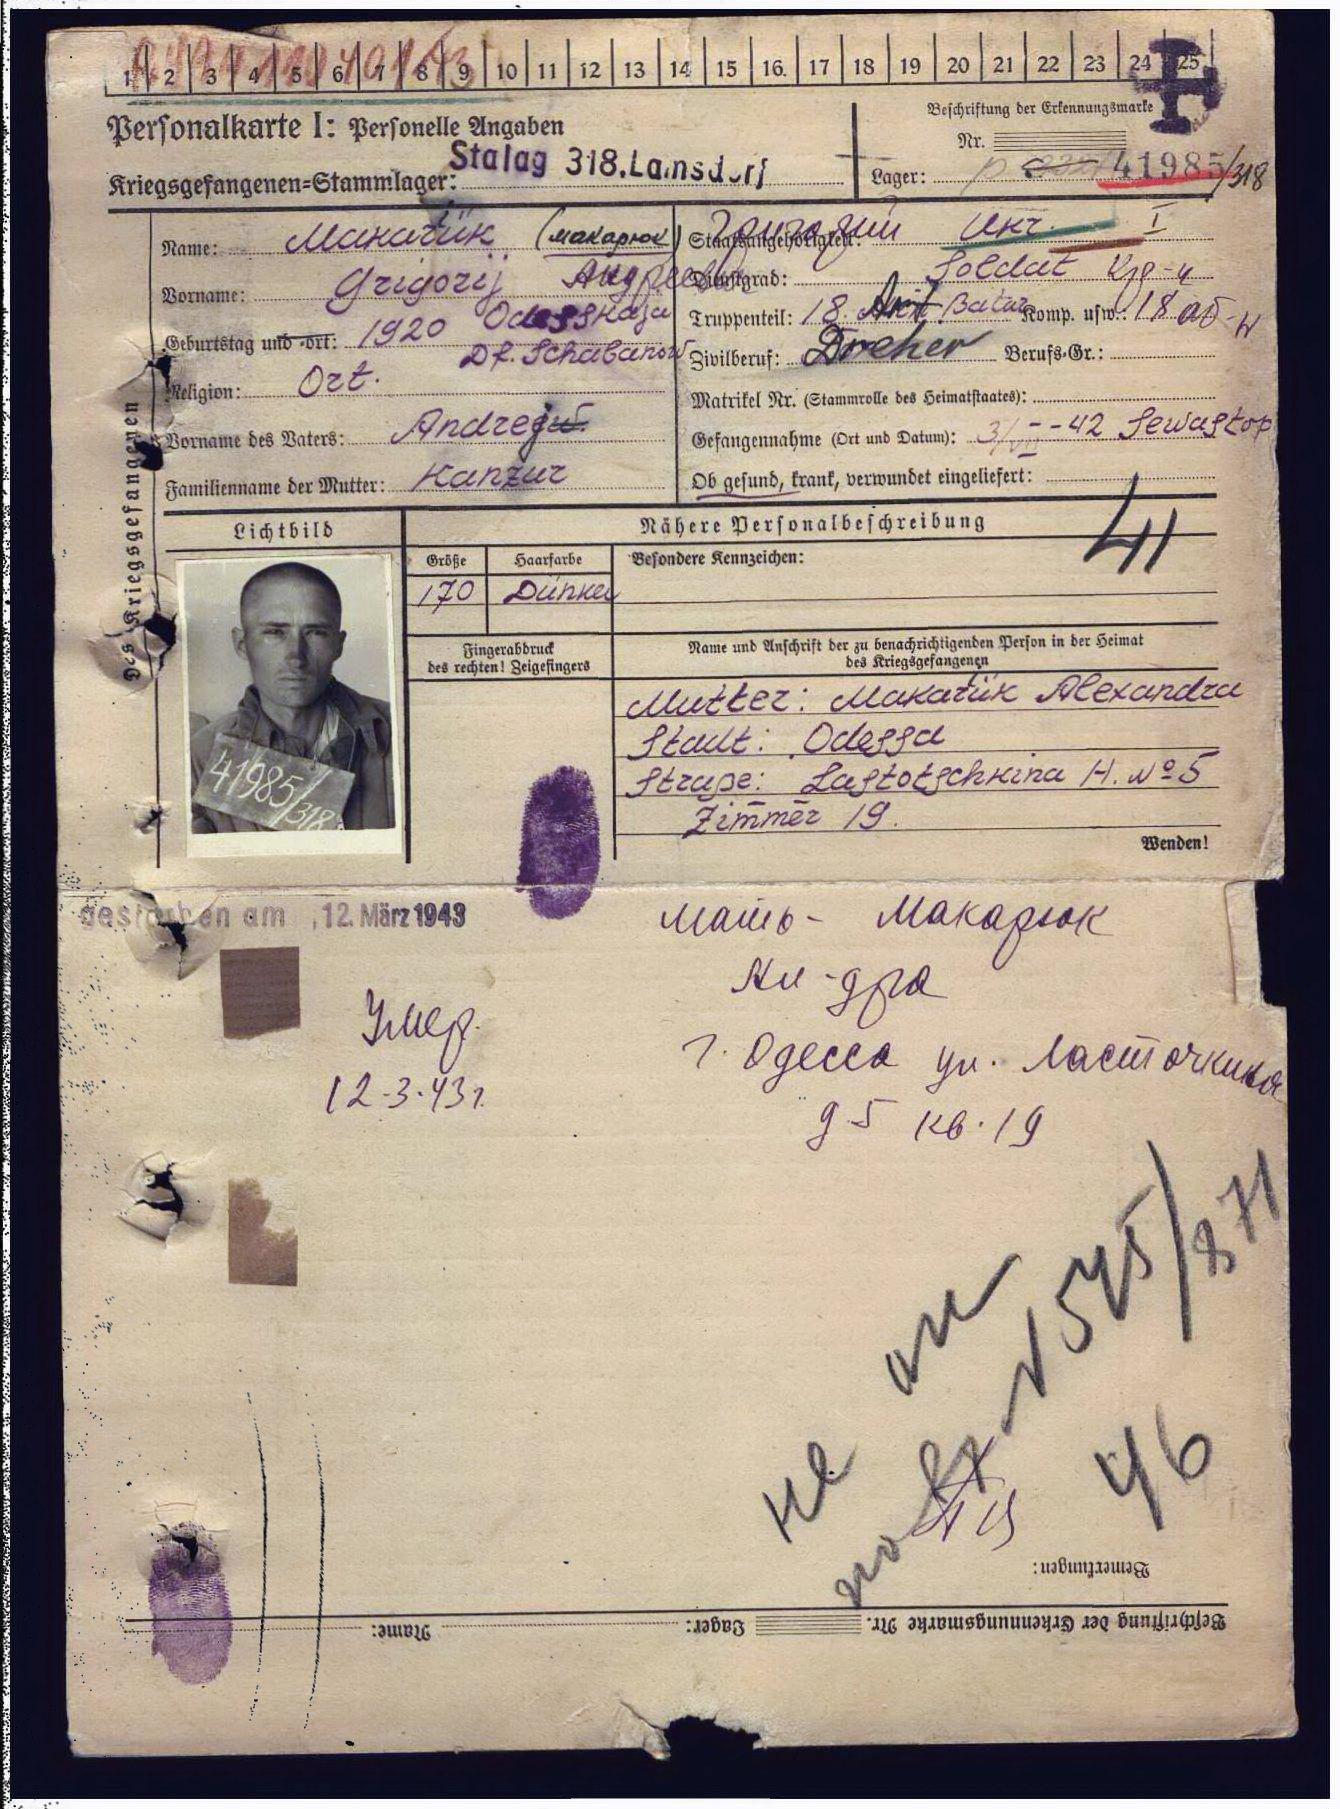 1 2 3 4 5 6 7 8 9 10 11 12 13 14 15 16. 17 18 19 20 21 22 23 24 25
Personalkarte I: Personelle Angaben
Beschriftung der Erkennungsmarke
Nr.
Kriegsgefangenen=Stammlager: Stalag 318.Lamsdorf
Lager: 41985/318
Des Kriegsgefangenen
Name: Makarük (Макарюк) Григорий
Staatsangehörigkeit: Ukr. I
Vorname: Grigorij Андреевич
Dienstgrad: Soldat Кр-ц
Geburtstag und -ort: 1920 Odesskaja
Df. Schabanow
Truppenteil: 18. Art. Komp. usw.: 18
Zivilberuf: Dreher Berufs-Gr.:
Religion: Ort.
Matrikel Nr. (Stammrolle des Heimatstaates):
Vorname des Vaters: Andrej
Gefangennahme (Ort und Datum): 3/VII - 42 Sewastop
Familienname der Mutter: Kanzur
Ob gesund, krank, verwundet eingeliefert:
41
Lichtbild
Nähere Personalbeschreibung
Größe Haarfarbe Besondere Kennzeichen:
170 Dünkel
Fingerabdruck
des rechten! Zeigefingers
Name und Anschrift der zu benachrichtigenden Person in der Heimat
des Kriegsgefangenen
Mutter: Makarük Alexandra
Stadt: Odessa
Straße: Lastotschkina H. № 5
Zimmer 19.
41985/318
Wenden!
gestorben am 12. März 1943
мать - Макарюк
Ал-дра
Умер.
12-3-43г.
г. Одесса ул. Ласточкина
д 5 кв. 19
не
1545/871
46
Bemerkungen:
Beschriftung der Erkennungsmarke Nr. Lager: Name: